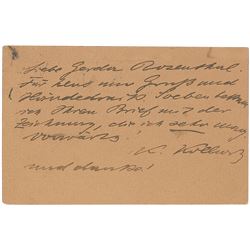 Liebe Gerda Rosenthal
Für heut nur Gruß und
Händedruck. Soeben
ich Ihren Brief mit der
Zeichnung, die ich sehr mag
vorwärts!
K. Kollwitz
und danke!